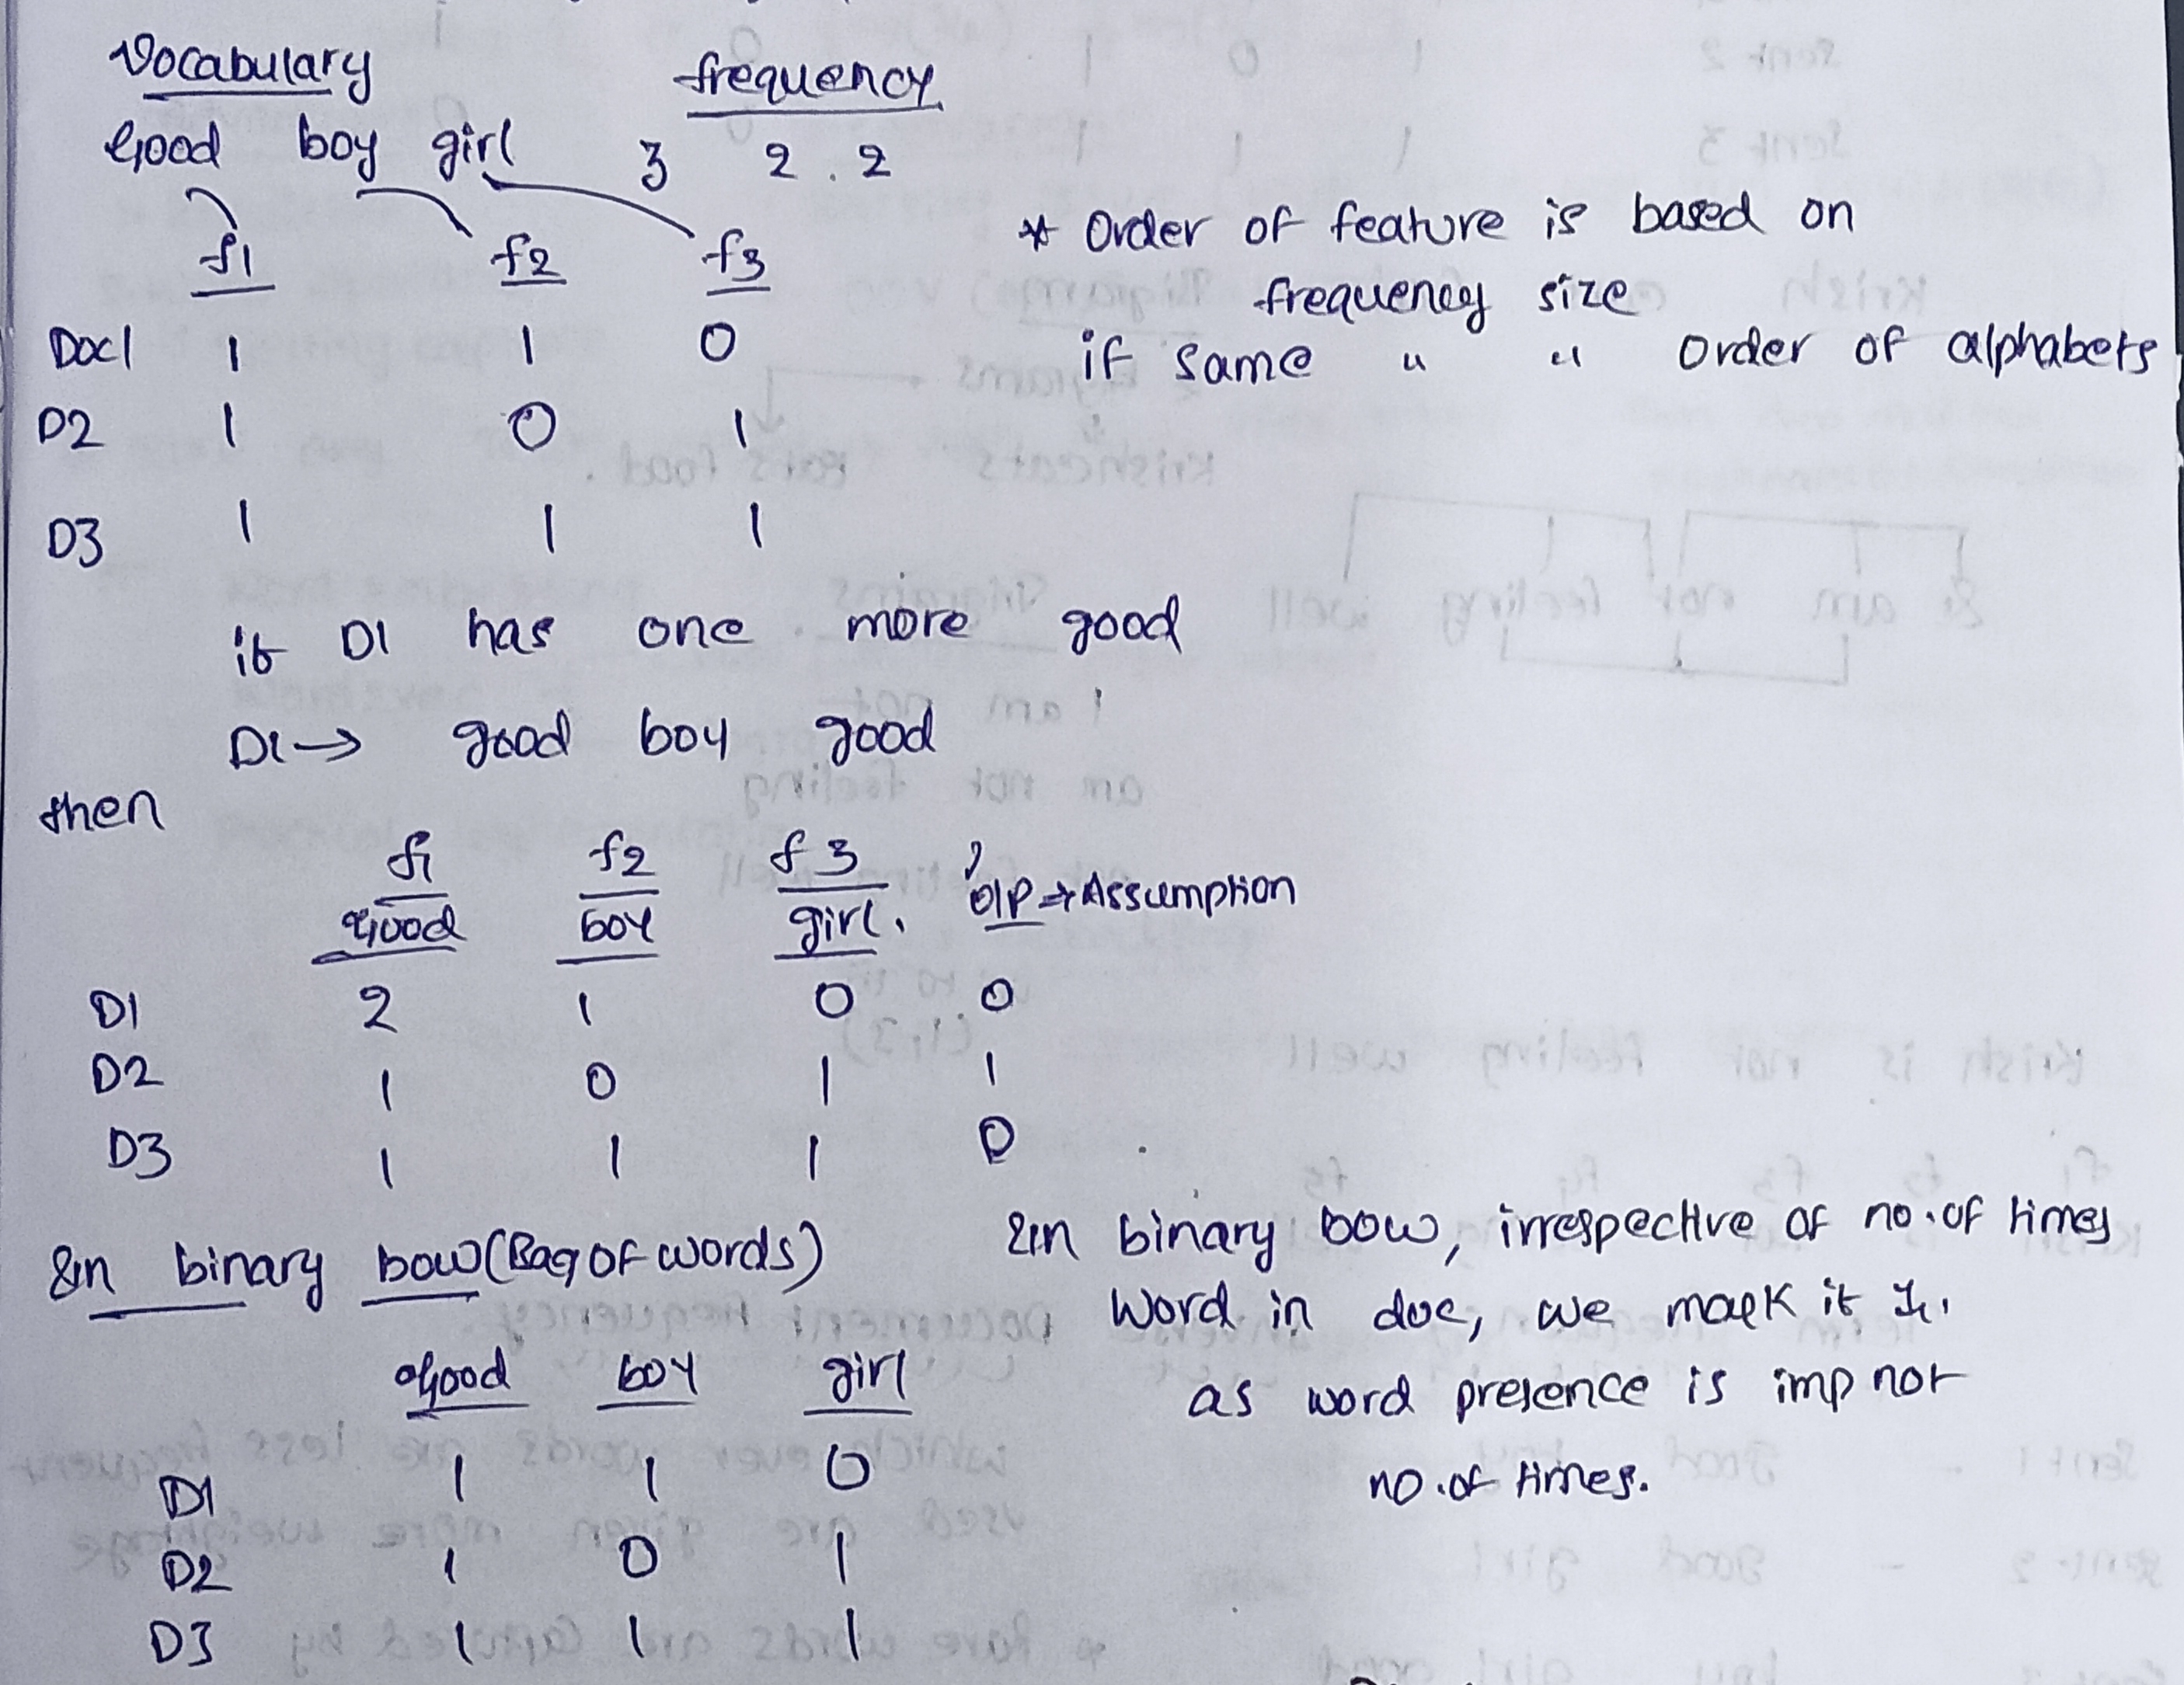 Vocabulary frequency
Good boy girl 3 2 . 2
f1 f2 f3
* Order of feature is based on
frequency size
if same " " order of alphabets
Doc1 1 1 0
D2 1 0 1
D3 1 1 1
if D1 has one more good
D1 → good boy good
then
f1 f2 f3
Good boy girl. O/P → Assumption
D1 2 1 0 0
D2 1 0 1 1
D3 1 1 1 0
In binary bow (Bag of words)
In binary bow, irrespective of no. of times
word in doc, we mark it 1.
as word presence is imp not
no. of times.
Good boy girl
D1 1 1 0
D2 1 0 1
D3 1 1 1